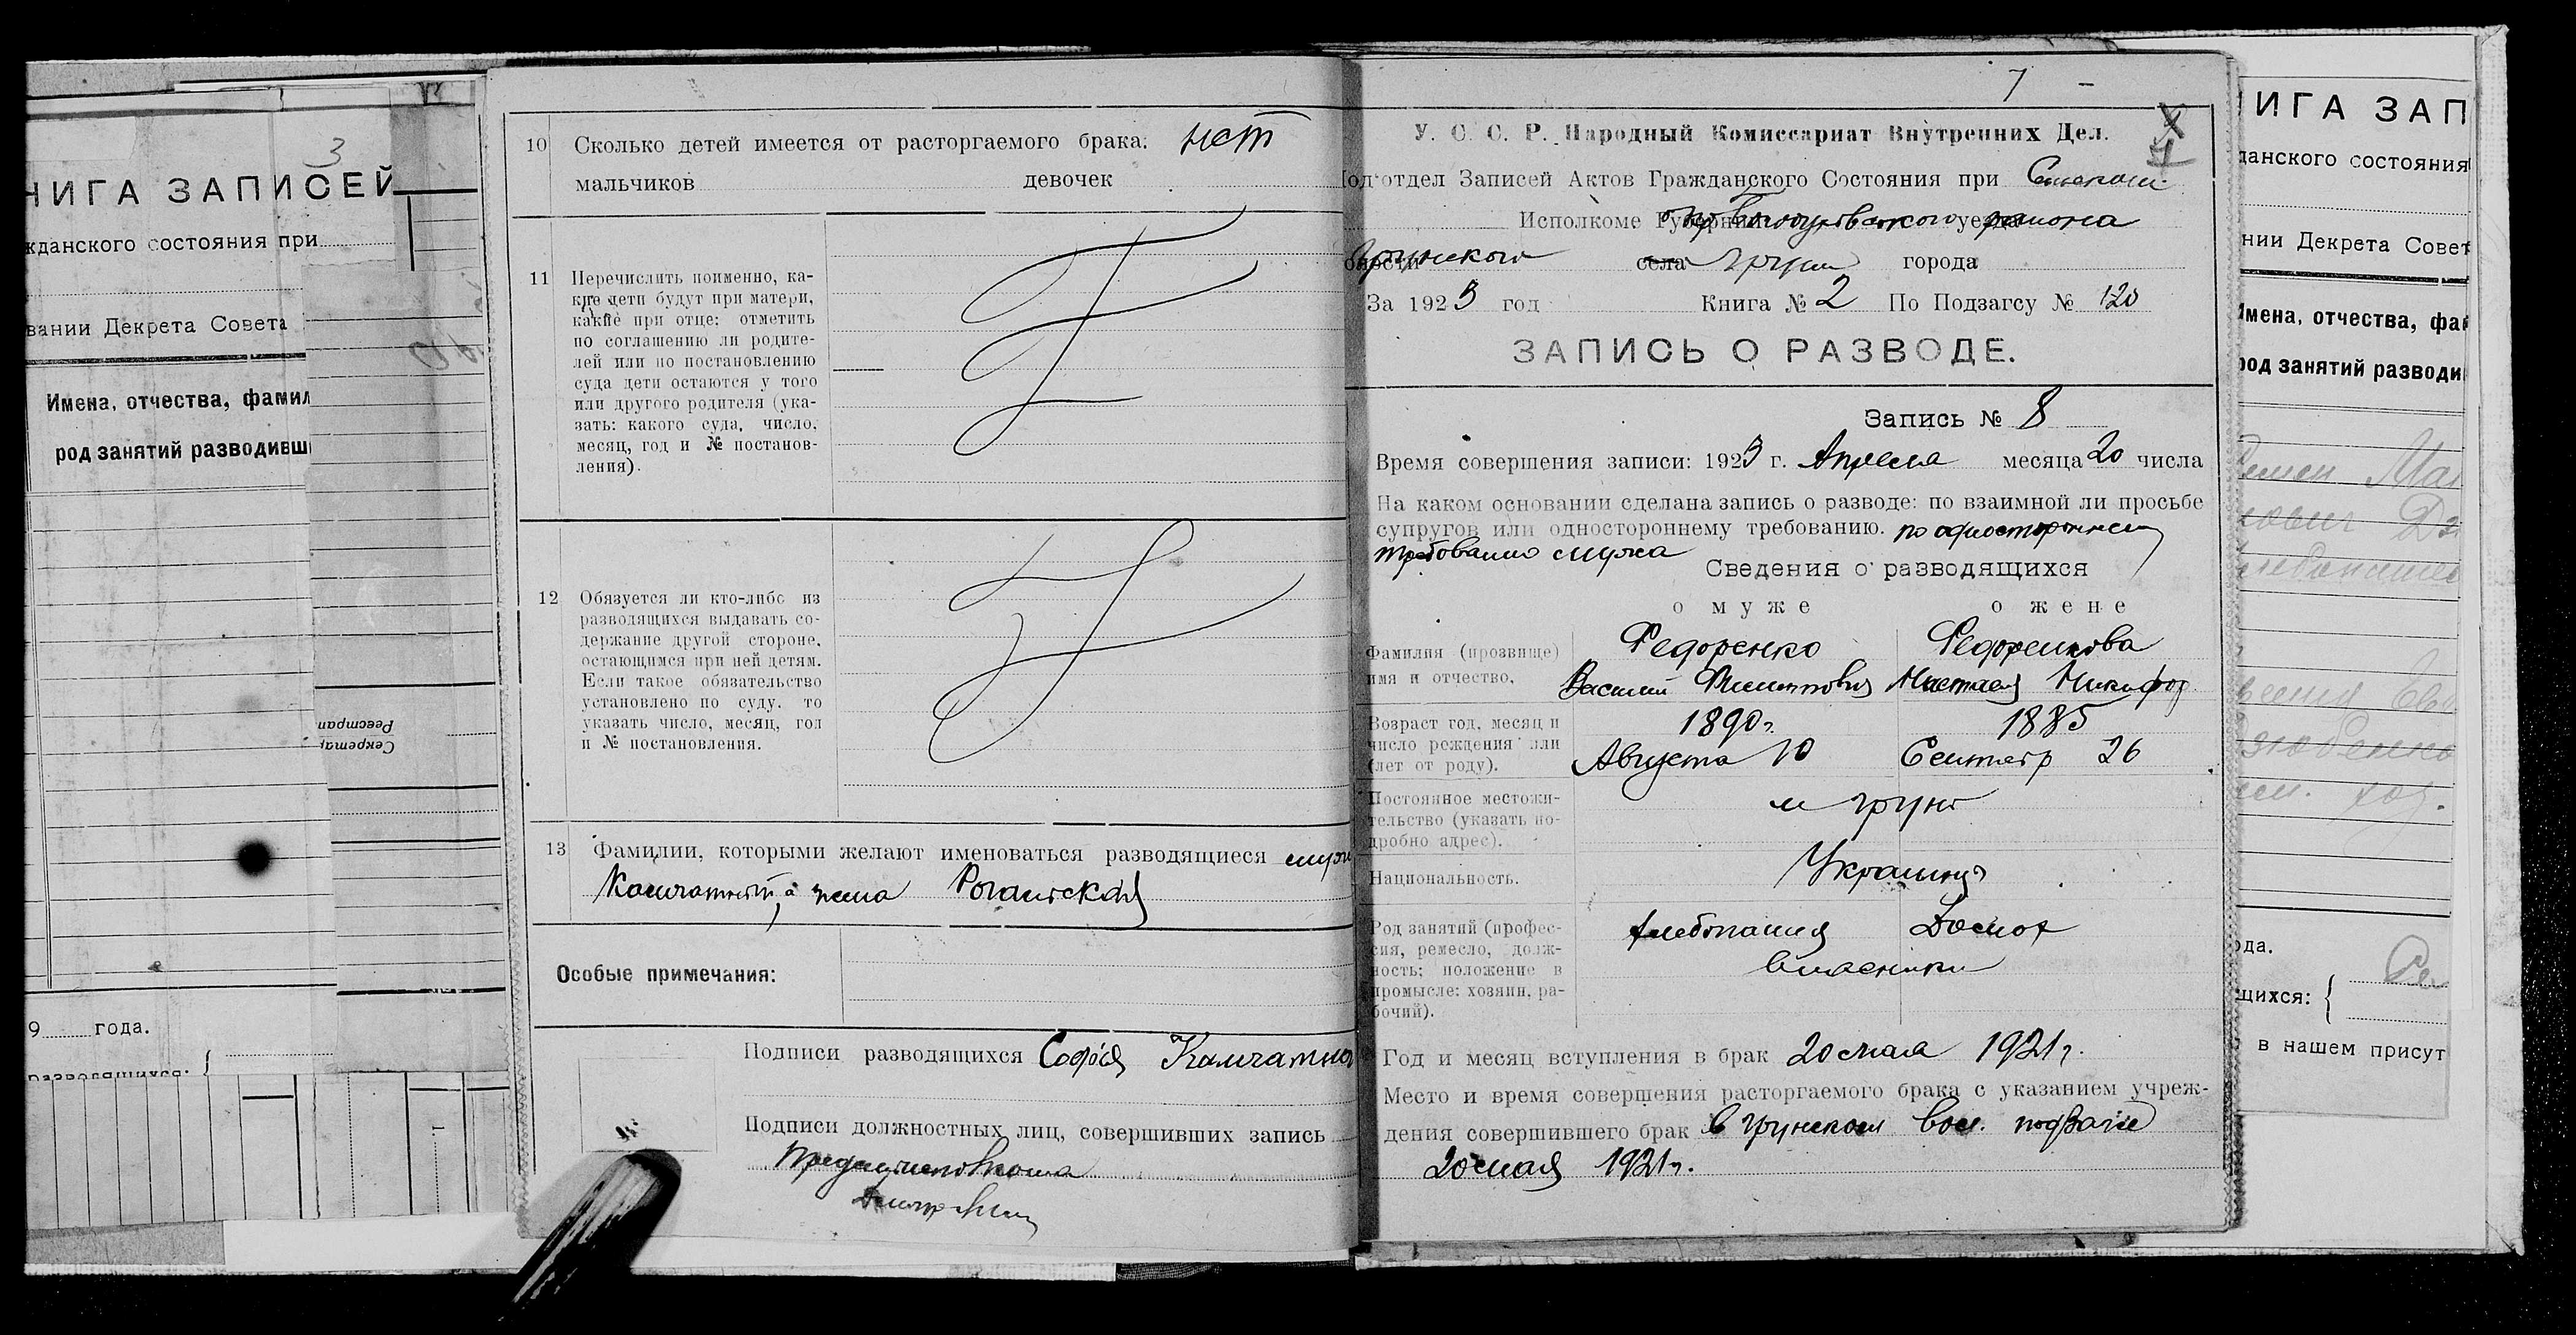 3
НИГА ЗАПИСЕЙ
жданского состояния при
вании Декрета Совета
Имена, отчества, фамил
род занятий разводивши
Регистрац
Секретар
9 года.
разводящихся: {
10 Сколько детей имеется от расторгаемого брака: нет
мальчиков девочек
11 Перечислить поименно, ка-
кие дети будут при матери,
какие при отце: отметить
по соглашению ли родите-
лей или по постановлению
суда дети остаются у того
или другого родителя (ука-
зать: какого суда, число,
месяц, год и № постанов-
ления).
12 Обязуется ли кто-либо из
разводящихся выдавать со-
держание другой стороне,
остающимся при ней детям.
Если такое обязательство
установлено по суду, то
указать число, месяц, год
и № постановления.
13 Фамилии, которыми желают именоваться разводящиеся
а жена
Особые примечания:
Подписи разводящихся София
Подписи должностных лиц, совершивших запись
7 -
У. С. С. Р. Народный Комиссариат Внутренних Дел.
Подотдел Записей Актов Гражданского Состояния при
Исполкоме Губернии уезда района
волости Грунского села Груни города
За 1923 год Книга № 2 По Подзагсу № 120
ЗАПИСЬ О РАЗВОДЕ.
Запись № 8
Время совершения записи: 1923 г. Апреля месяца 20 числа
На каком основании сделана запись о разводе: по взаимной ли просьбе
супругов или одностороннему требованию. по односторонему
требованию мужа
Сведения о разводящихся
о муже о жене
Фамилия (прозвище)
имя и отчество.
Федоренко Федоренкова
Василий Филиппович Настасия Никифор
Возраст год, месяц и
число рождения или
(лет от роду).
1890 г. 1885
Августа 10 Сентябр 26
Постоянное местожи-
тельство (указать по-
дробно адрес).
м Грунь
Национальность. Украинцы
Род занятий (профес-
сия, ремесло, долж-
ность; положение в
промысле: хозяин, ра-
бочий).
хлебопашец Домох
Год и месяц вступления в брак 20 мая 1921 г.
Место и время совершения расторгаемого брака с указанием учреж-
дения совершившего брак в Грунском вол. подзагсе
20 мая 1921 г.
ИГА ЗАП
данского состояния
нии Декрета Совет
Имена, отчества, фам
род занятий разводи
ода.
щихся: {
в нашем присут